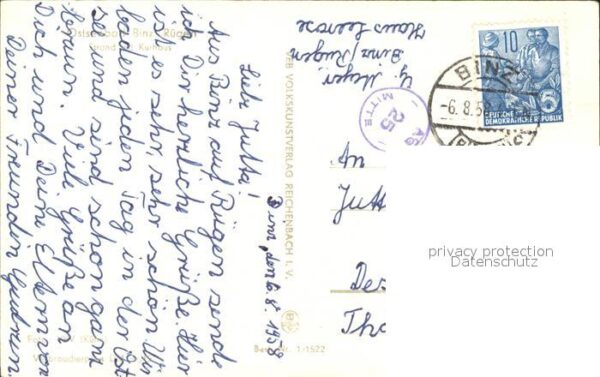 Ostseebad Binz / Rügen
Strand mit Kurhaus
Binz, den 6.8.1958
Liebe Jutta!
Aus Binz auf Rügen sende
ich Dir herzliche Grüße. Hier
ist es sehr, sehr schön. Wir
baden jeden Tag in der Ost-
see und sind schon ganz
braun. Viele Grüße an
Dich und Deine Eltern von
Deiner Freundin Gudrun
VEB VOLKSKUNSTVERLAG REICHENBACH I. V.
Best.-Nr. 1-1522
Meyer
Binz/Rügen
Haus Seerose
10
5
DEUTSCHE
DEMOKRATISCHE REPUBLIK
BINZ
-6.8.5
25
MITTE
An
Jutt
Des
Tho
privacy protection
Datenschutz